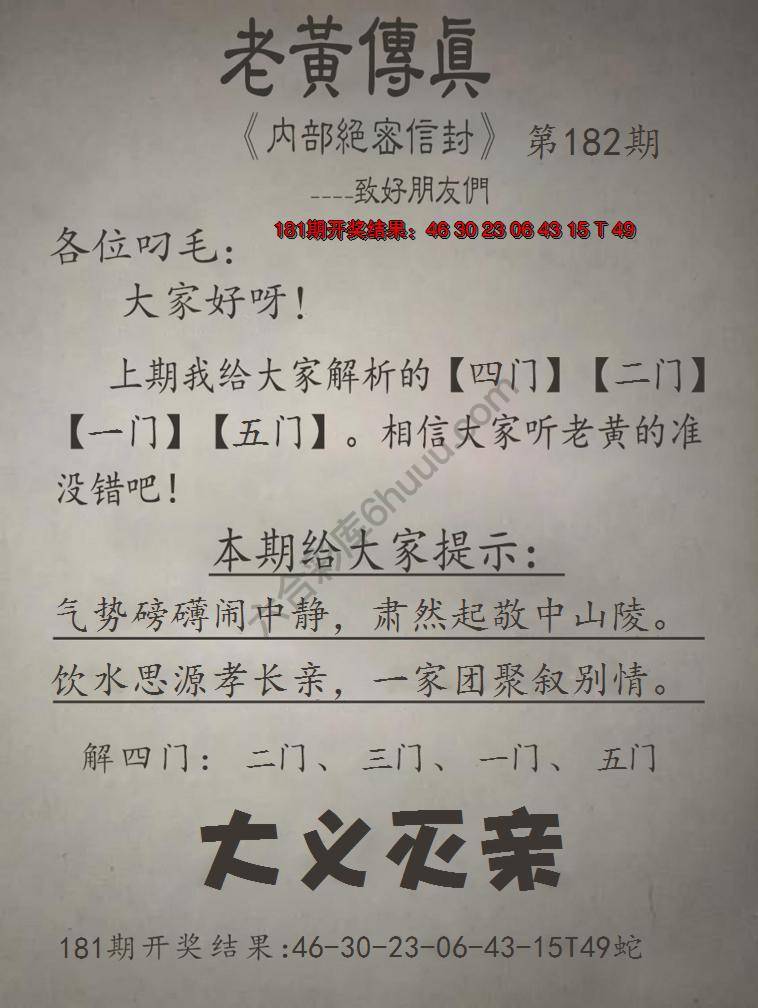 老黃傳眞
《内部絕密信封》 第182期
----致好朋友們
181期开奖结果：46 30 23 06 43 15 T 49
各位叼毛：
大家好呀！
上期我给大家解析的【四门】【二门】
【一门】【五门】。相信大家听老黄的准
没错吧！
本期给大家提示：
气势磅礴闹中静，肃然起敬中山陵。
饮水思源孝长亲，一家团聚叙别情。
解四门： 二门、 三门、 一门、 五门
大义灭亲
181期开奖结果:46-30-23-06-43-15T49蛇
六合彩库6huuu.com